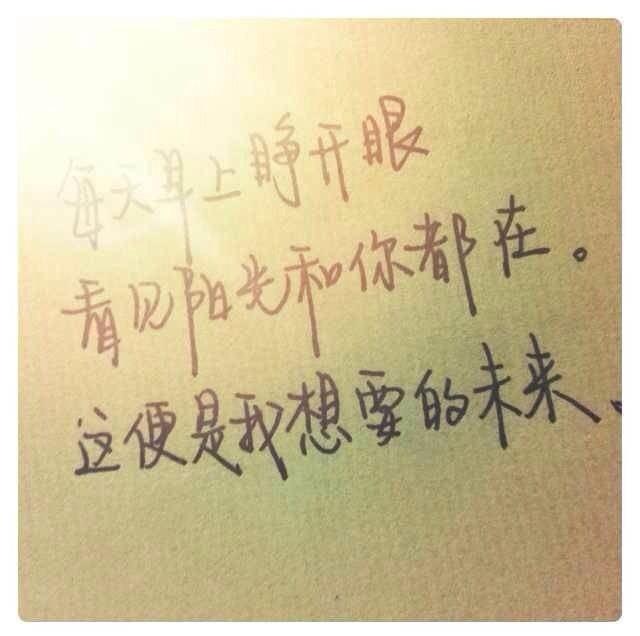 每天早上睁开眼
看见阳光和你都在。
这便是我想要的未来。